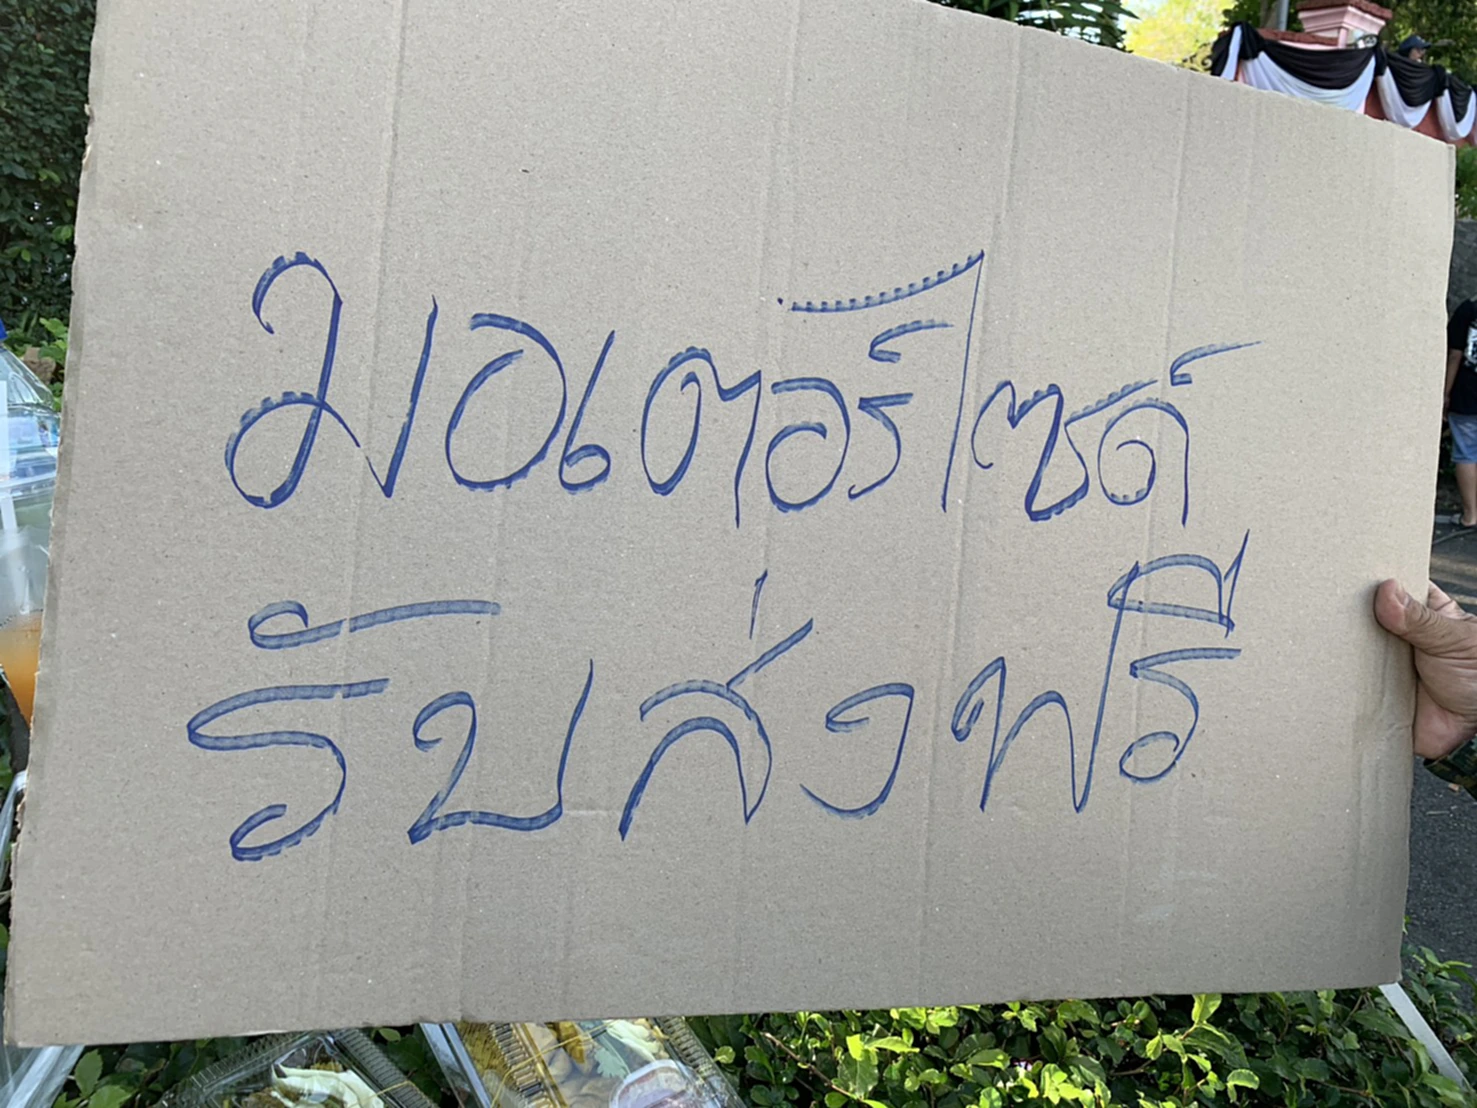 มอเตอร์ไซด์
รับส่งฟรี